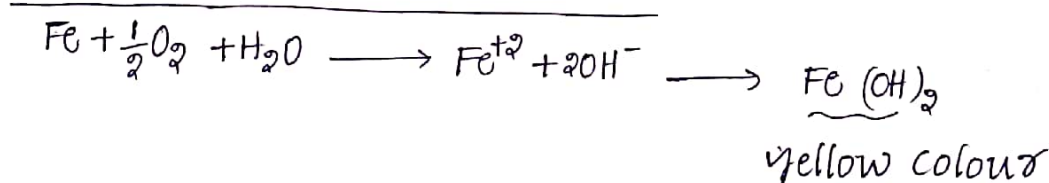 Fe + 1/2 O₂ + H₂O ⟶ Fe⁺² + 2OH⁻ ⟶ Fe (OH)₂
yellow colour